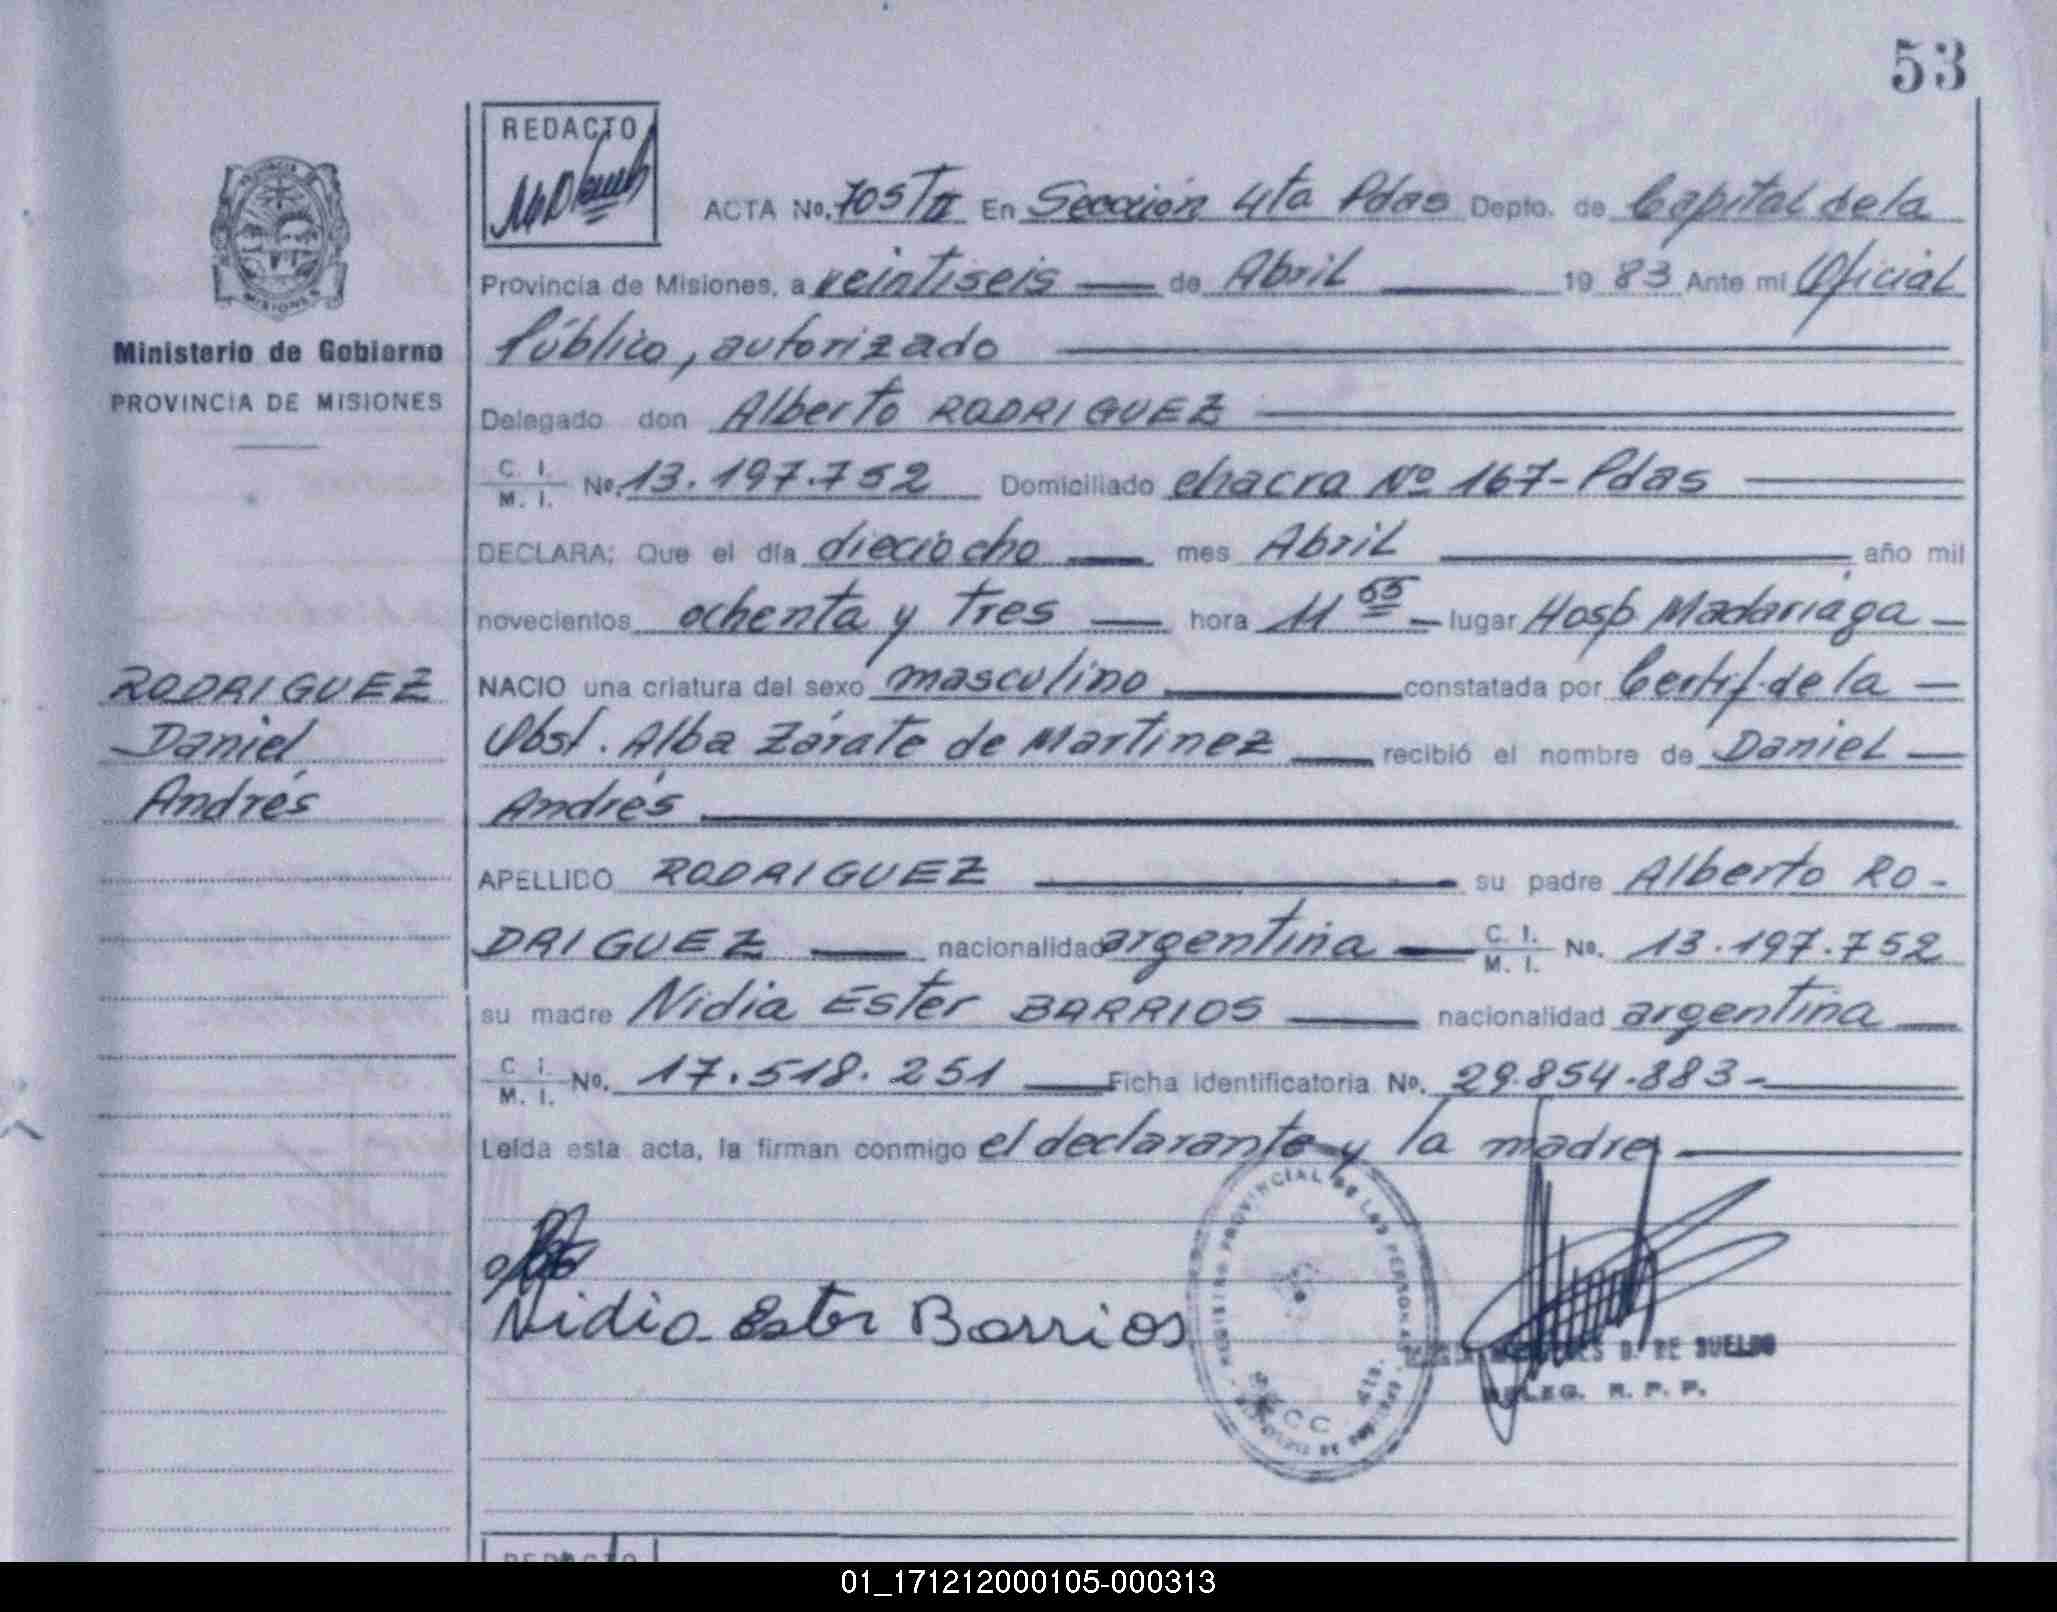 53
REDACTO
ACTA No. 705/II En Sección 4ta Pdas Depto. de Capital de la
Provincia de Misiones, a veintiseis de Abril 1983 Ante mi Oficial
Público, autorizado
Delegado don Alberto RODRIGUEZ
C. I. / M. I. No. 13.197.752 Domiciliado chacra Nº 167-Pdas
DECLARA: Que el día dieciocho mes Abril año mil
novecientos ochenta y tres hora 11 55 lugar Hosp Madariaga
NACIO una criatura del sexo masculino constatada por Certif. de la
Obst. Alba Zárate de Martinez recibió el nombre de Daniel
Andrés
APELLIDO RODRIGUEZ su padre Alberto RO-
DRIGUEZ nacionalidad argentina C. I. / M. I. No. 13.197.752
su madre Nidia Ester BARRIOS nacionalidad argentina
C. I. / M. I. No. 17.518.251 Ficha identificatoria No. 29.854.883-
Leída esta acta, la firman conmigo el declarante y la madre
Nidia Ester Barrios
REGISTRO PROVINCIAL DE LAS PERSONAS
SECC 4ta.
D. DE SUELDO
DELEG. R. P. P.
PROVINCIA DE
MISIONES
Ministerio de Gobierno
PROVINCIA DE MISIONES
RODRIGUEZ
Daniel
Andrés
REDACTO
01_171212000105-000313